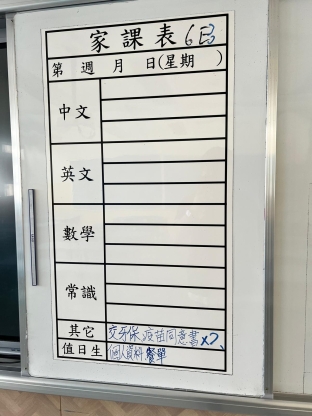 家課表 6
第 週 月 日(星期 )
中文
英文
數學
常識
其它 交牙保,疫苗同意書x2、
值日生 個人資料 餐單